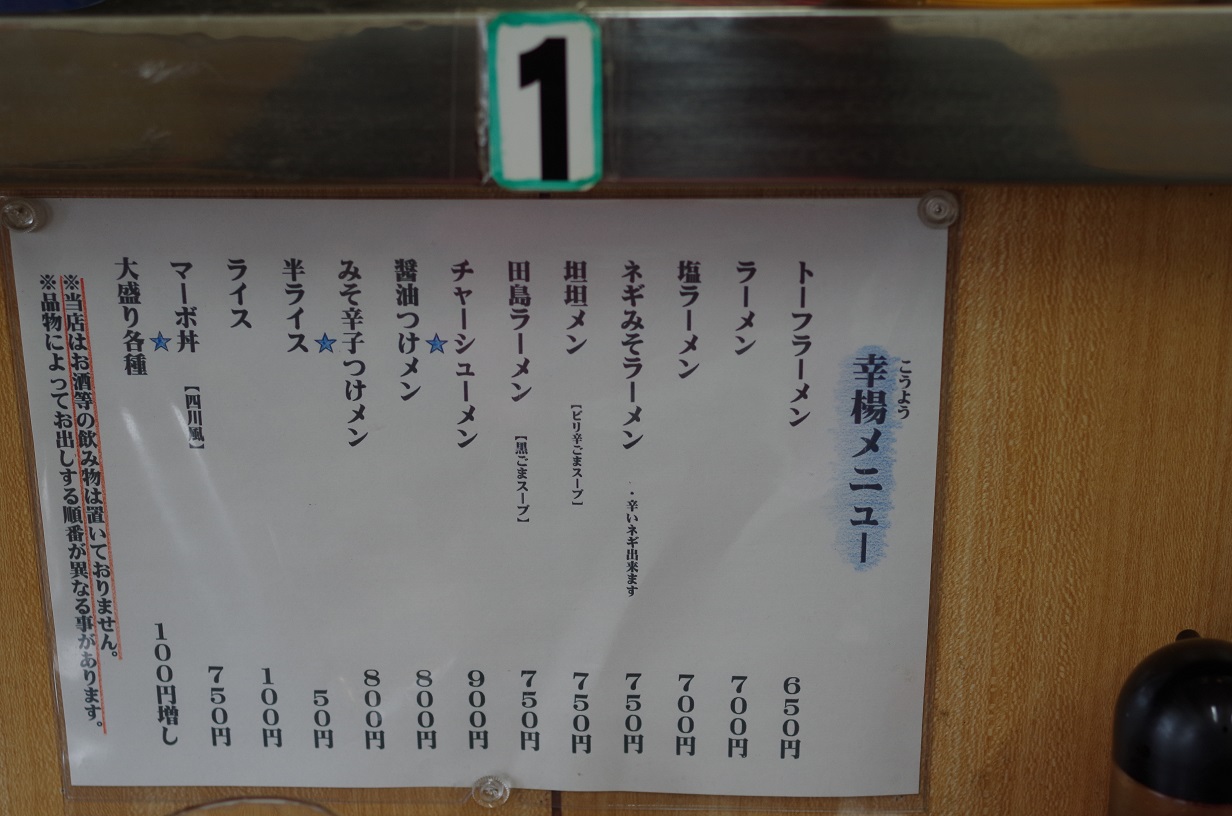 1
こうよう
幸楊メニュー
トーフラーメン 650円
ラーメン 700円
塩ラーメン 700円
ネギみそラーメン ・辛いネギ出来ます 750円
坦坦メン 【ピリ辛ごまスープ】 750円
田島ラーメン 【黒ごまスープ】 750円
チャーシューメン 900円
★
醤油つけメン 800円
みそ辛子つけメン 800円
★
半ライス 50円
ライス 100円
マーボ丼 【四川風】 750円
★
大盛り各種 100円増し
※当店はお酒等の飲み物は置いておりません。
※品物によってお出しする順番が異なる事があります。